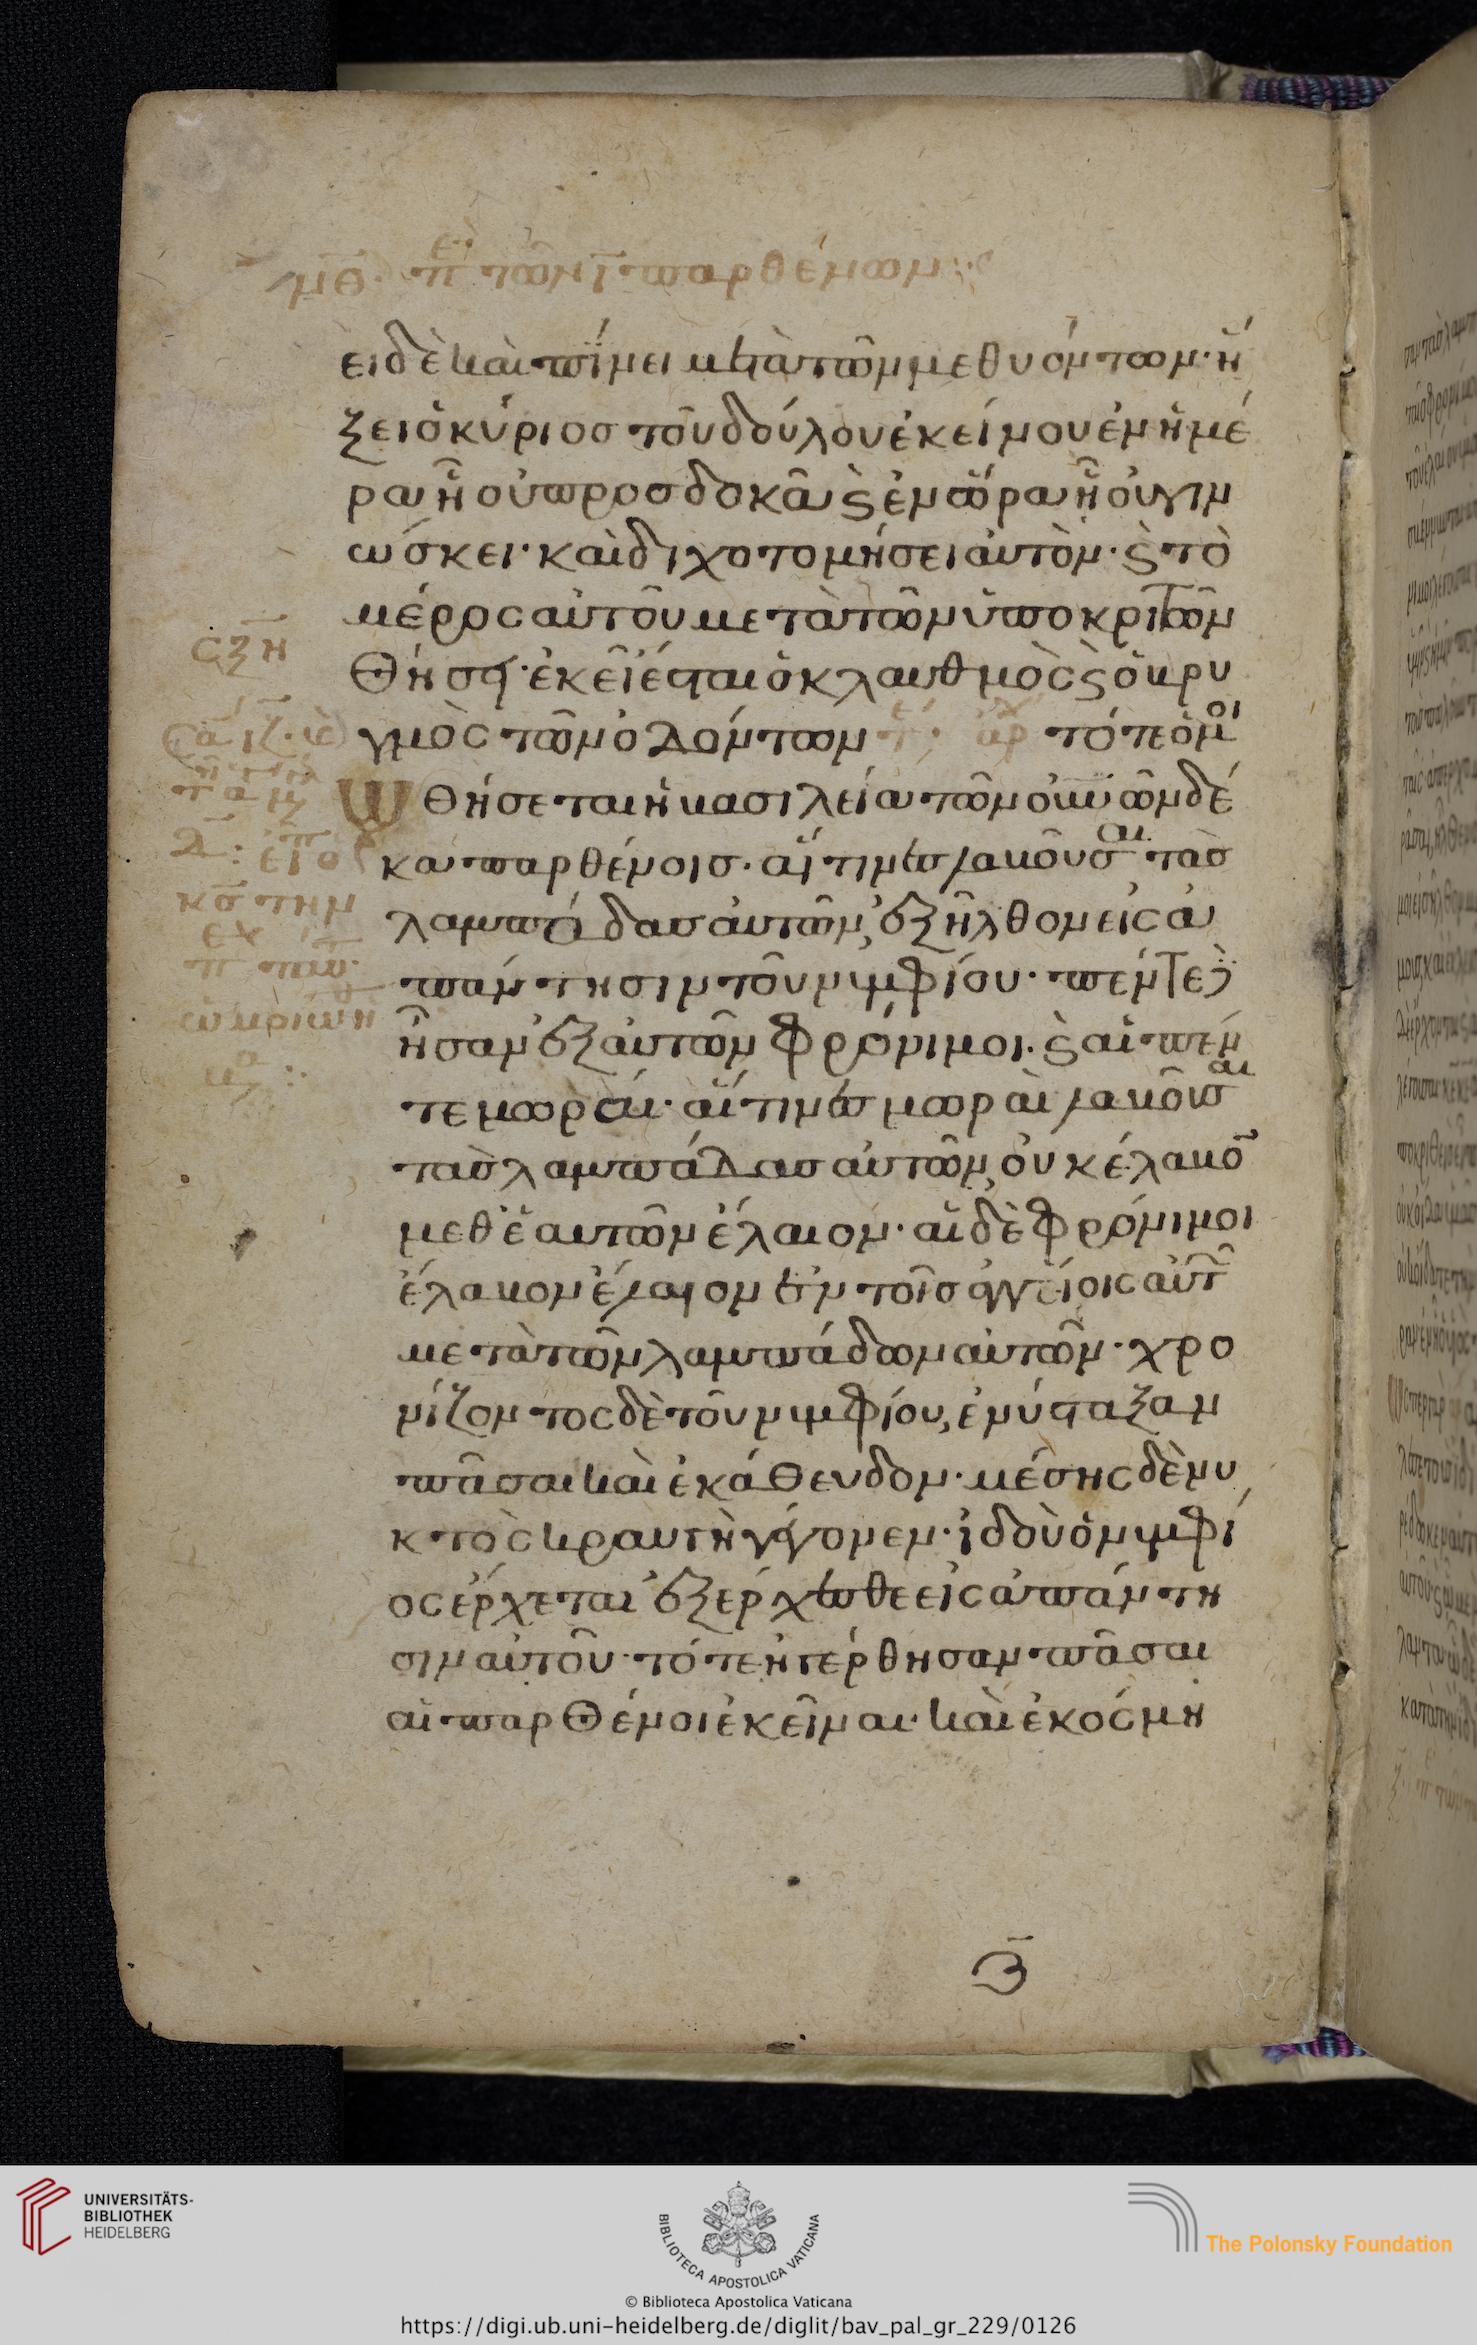 μθ. πε τῶν ι παρθένων
ειδὲ καὶ πίνει μετὰ τῶν μεθυόντων· ἥ
ξει ὁ κύριος τοῦ δούλου ἐκείνου ἐν ἡμέ
ρα ἧ οὐ προσδοκᾶ ϗ ἐν ὥρα ἧ οὐ γιν
ώσκει· καὶ διχοτομήσει αὐτὸν· ϗ τὸ
μέρος αὐτοῦ μετὰ τῶν ὑποκριτῶν
Θήσει· ἐκεῖ ἔσται ὁ κλαυθμὸς ϗ ὁ βρυ
γμὸς τῶν ὀδόντων τέ ἀρχ τότε ὁμοι
ωθήσεται ἡ βασιλεία τῶν οὐνῶν δέ
κα παρθένοις· αἵτινες λαβοῦσαι τὰς
λαμπάδας αὐτῶν, ἐξῆλθον εἰς ἀ
πάντησιν τοῦ νυμφίου· πέντε δὲ
ἦσαν ἐξ αὐτῶν φρόνιμοι· ϗ αἱ πέν
τε μωραί· αἵτινες μωραὶ λαβοῦσαι
τὰς λαμπάδας αὐτῶν, οὐκ ἔλαβον
μεθ' ἑαυτῶν ἔλαιον· αἱ δὲ φρόνιμοι
ἔλαβον ἔλαιον ἐν τοῖς ἀγγείοις αὐτῶν
μετὰ τῶν λαμπάδων αὐτῶν· χρο
νίζοντος δὲ τοῦ νυμφίου, ἐνύσταξαν
πᾶσαι καὶ ἐκάθευδον· μέσης δὲ νυ
κτὸς κραυγὴ γέγονεν· ἰδοὺ ὁ νυμφί
ος ἔρχεται ἐξέρχεσθε εἰς ἀπάντη
σιν αὐτοῦ· τότε ἠγέρθησαν πᾶσαι
αἱ παρθένοι ἐκεῖναι· καὶ ἐκόσμη
ςξη
UNIVERSITÄTS-
BIBLIOTHEK
HEIDELBERG
BIBLIOTECA APOSTOLICA VATICANA
The Polonsky Foundation
© Biblioteca Apostolica Vaticana
https://digi.ub.uni-heidelberg.de/diglit/bav_pal_gr_229/0126